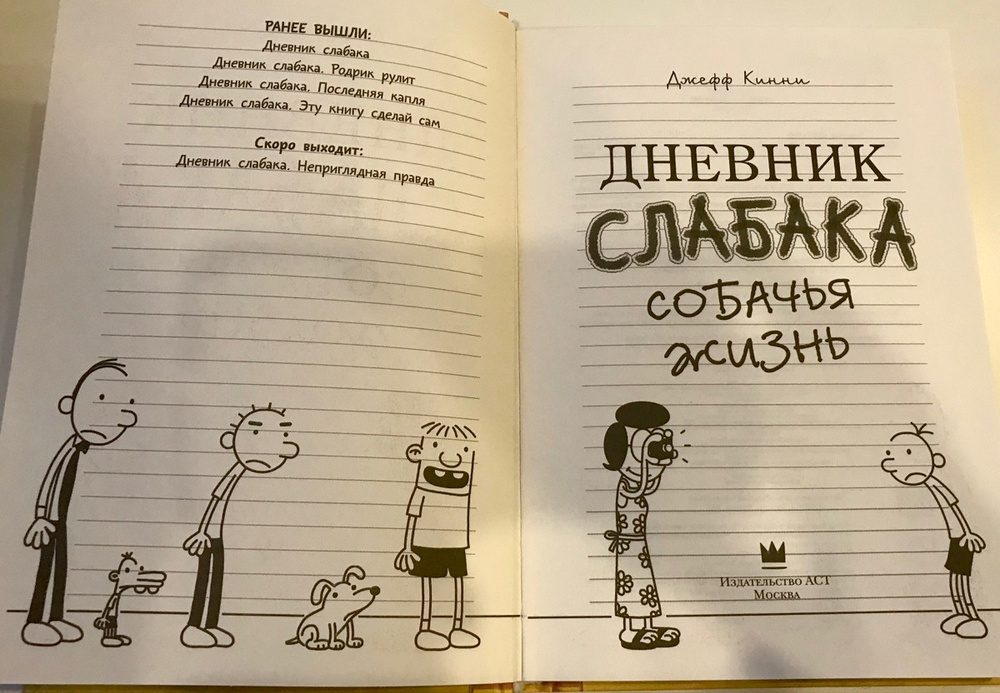 РАНЕЕ ВЫШЛИ:
Дневник слабака
Дневник слабака. Родрик рулит
Дневник слабака. Последняя капля
Дневник слабака. Эту книгу сделай сам
Скоро выходит:
Дневник слабака. Неприглядная правда
Джефф Кинни
ДНЕВНИК
СЛАБАКА
СОБАЧЬЯ
ЖИЗНЬ
Издательство АСТ
Москва